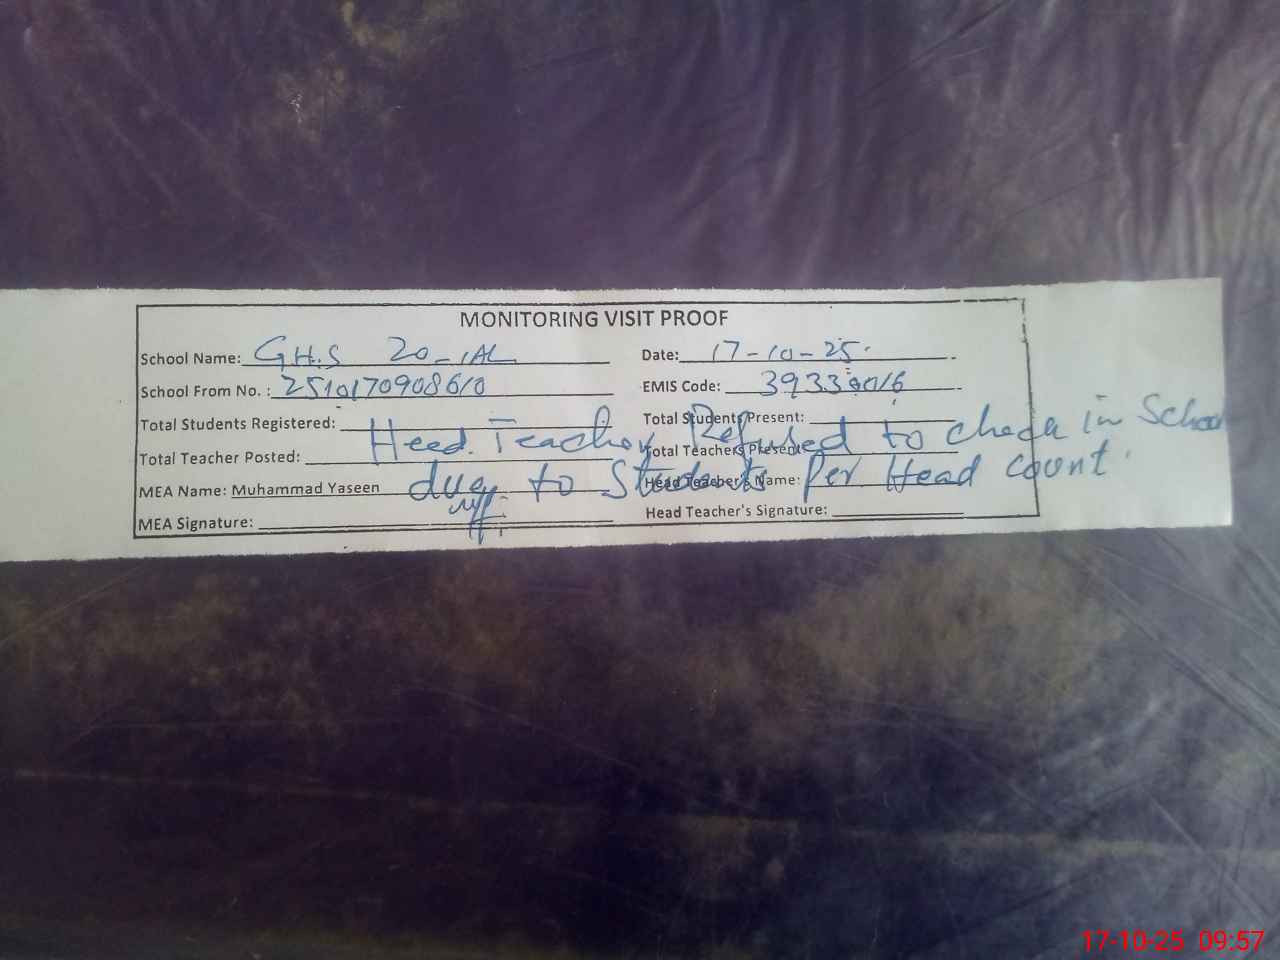 MONITORING VISIT PROOF
School Name: G.H.S 20-1AL Date: 17-10-25
School From No. : 2510170908610 EMIS Code: 39330016
Total Students Registered: Total Students Present:
Head Teacher Refused to check in School
Total Teacher Posted: Total Teachers Present:
due to Students Per Head count.
MEA Name: Muhammad Yaseen Head Teacher's Name:
MEA Signature: Head Teacher's Signature:
17-10-25 09:57